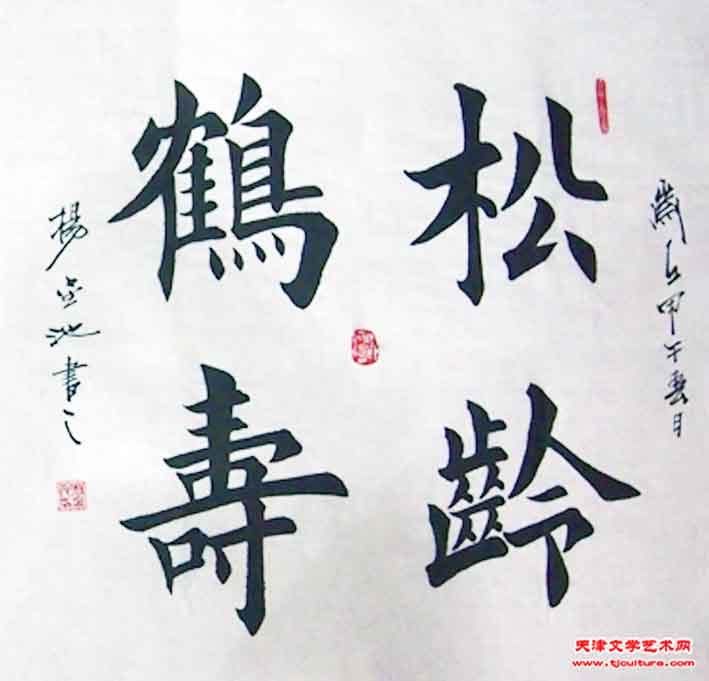 松齡
鶴壽
歲在甲午
楊
書之
天津文学艺术网
www.tjculture.com